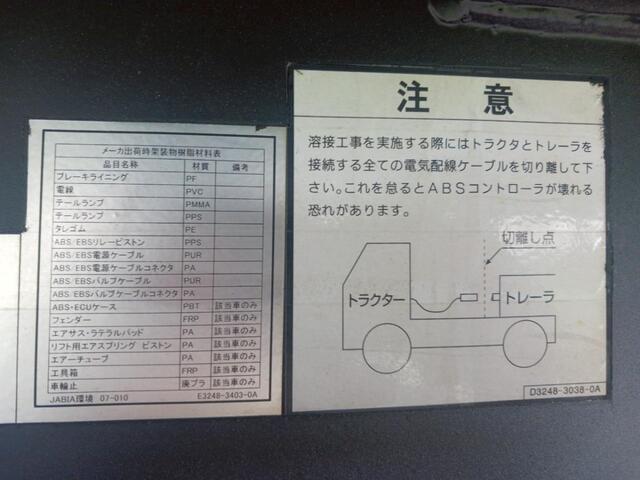 メーカ出荷時架装物樹脂材料表
品目名称 材質 備考
ブレーキライニング PF
電線 PVC
テールランプ PMMA
テールランプ PPS
タレゴム PE
ABS/EBSリレーピストン PPS
ABS/EBS電源ケーブル PUR
ABS/EBS電源ケーブルコネクタ PA
ABS/EBSバルブケーブル PUR
ABS/EBSバルブケーブルコネクタ PA
ABS・ECUケース PBT 該当車のみ
フェンダー FRP 該当車のみ
エアサス・ラテラルパッド PA 該当車のみ
リフト用エアスプリング ピストン PA 該当車のみ
エアーチューブ PA 該当車のみ
工具箱 FRP 該当車のみ
車輪止 廃プラ 該当車のみ
JABIA環境 07-010 E3248-3403-0A
注意
溶接工事を実施する際にはトラクタとトレーラを
接続する全ての電気配線ケーブルを切り離して下
さい。これを怠るとABSコントローラが壊れる
恐れがあります。
切離し点
トラクター トレーラ
D3248-3038-0A